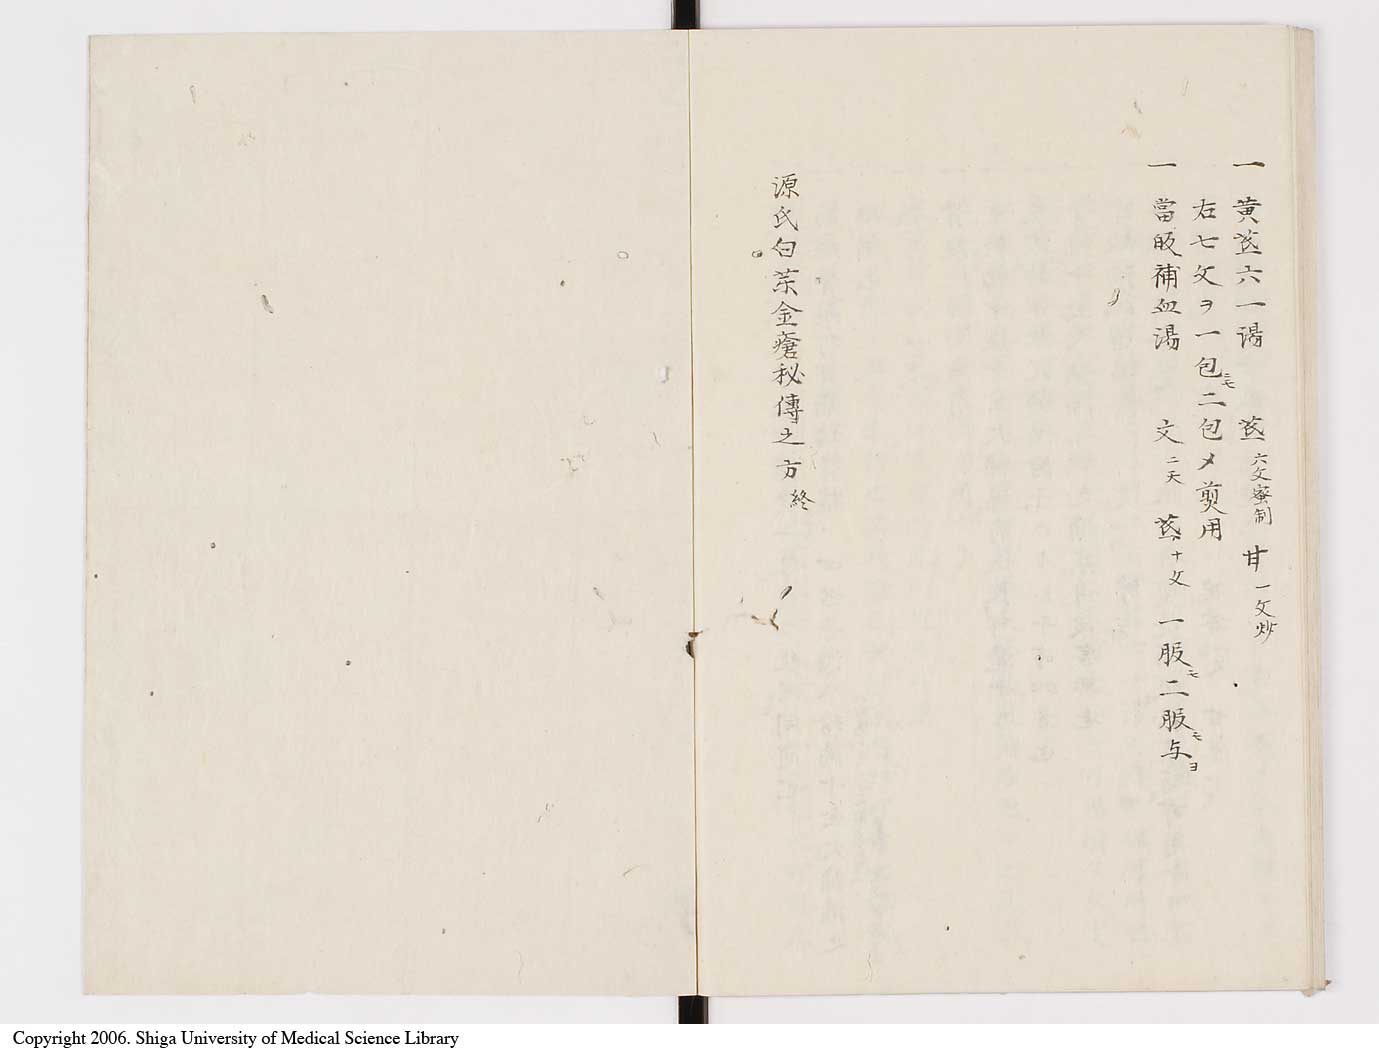 一 黄茋六一湯 茋 六文蜜制 甘 一文炒
右七文ヲ一包ニモ二包〆煎用
一 當皈補血湯 文 二天 茋 十文 一服ニモ二服ニモ与ヨ
源氏白茶金瘡秘傳之方 終
Copyright 2006. Shiga University of Medical Science Library